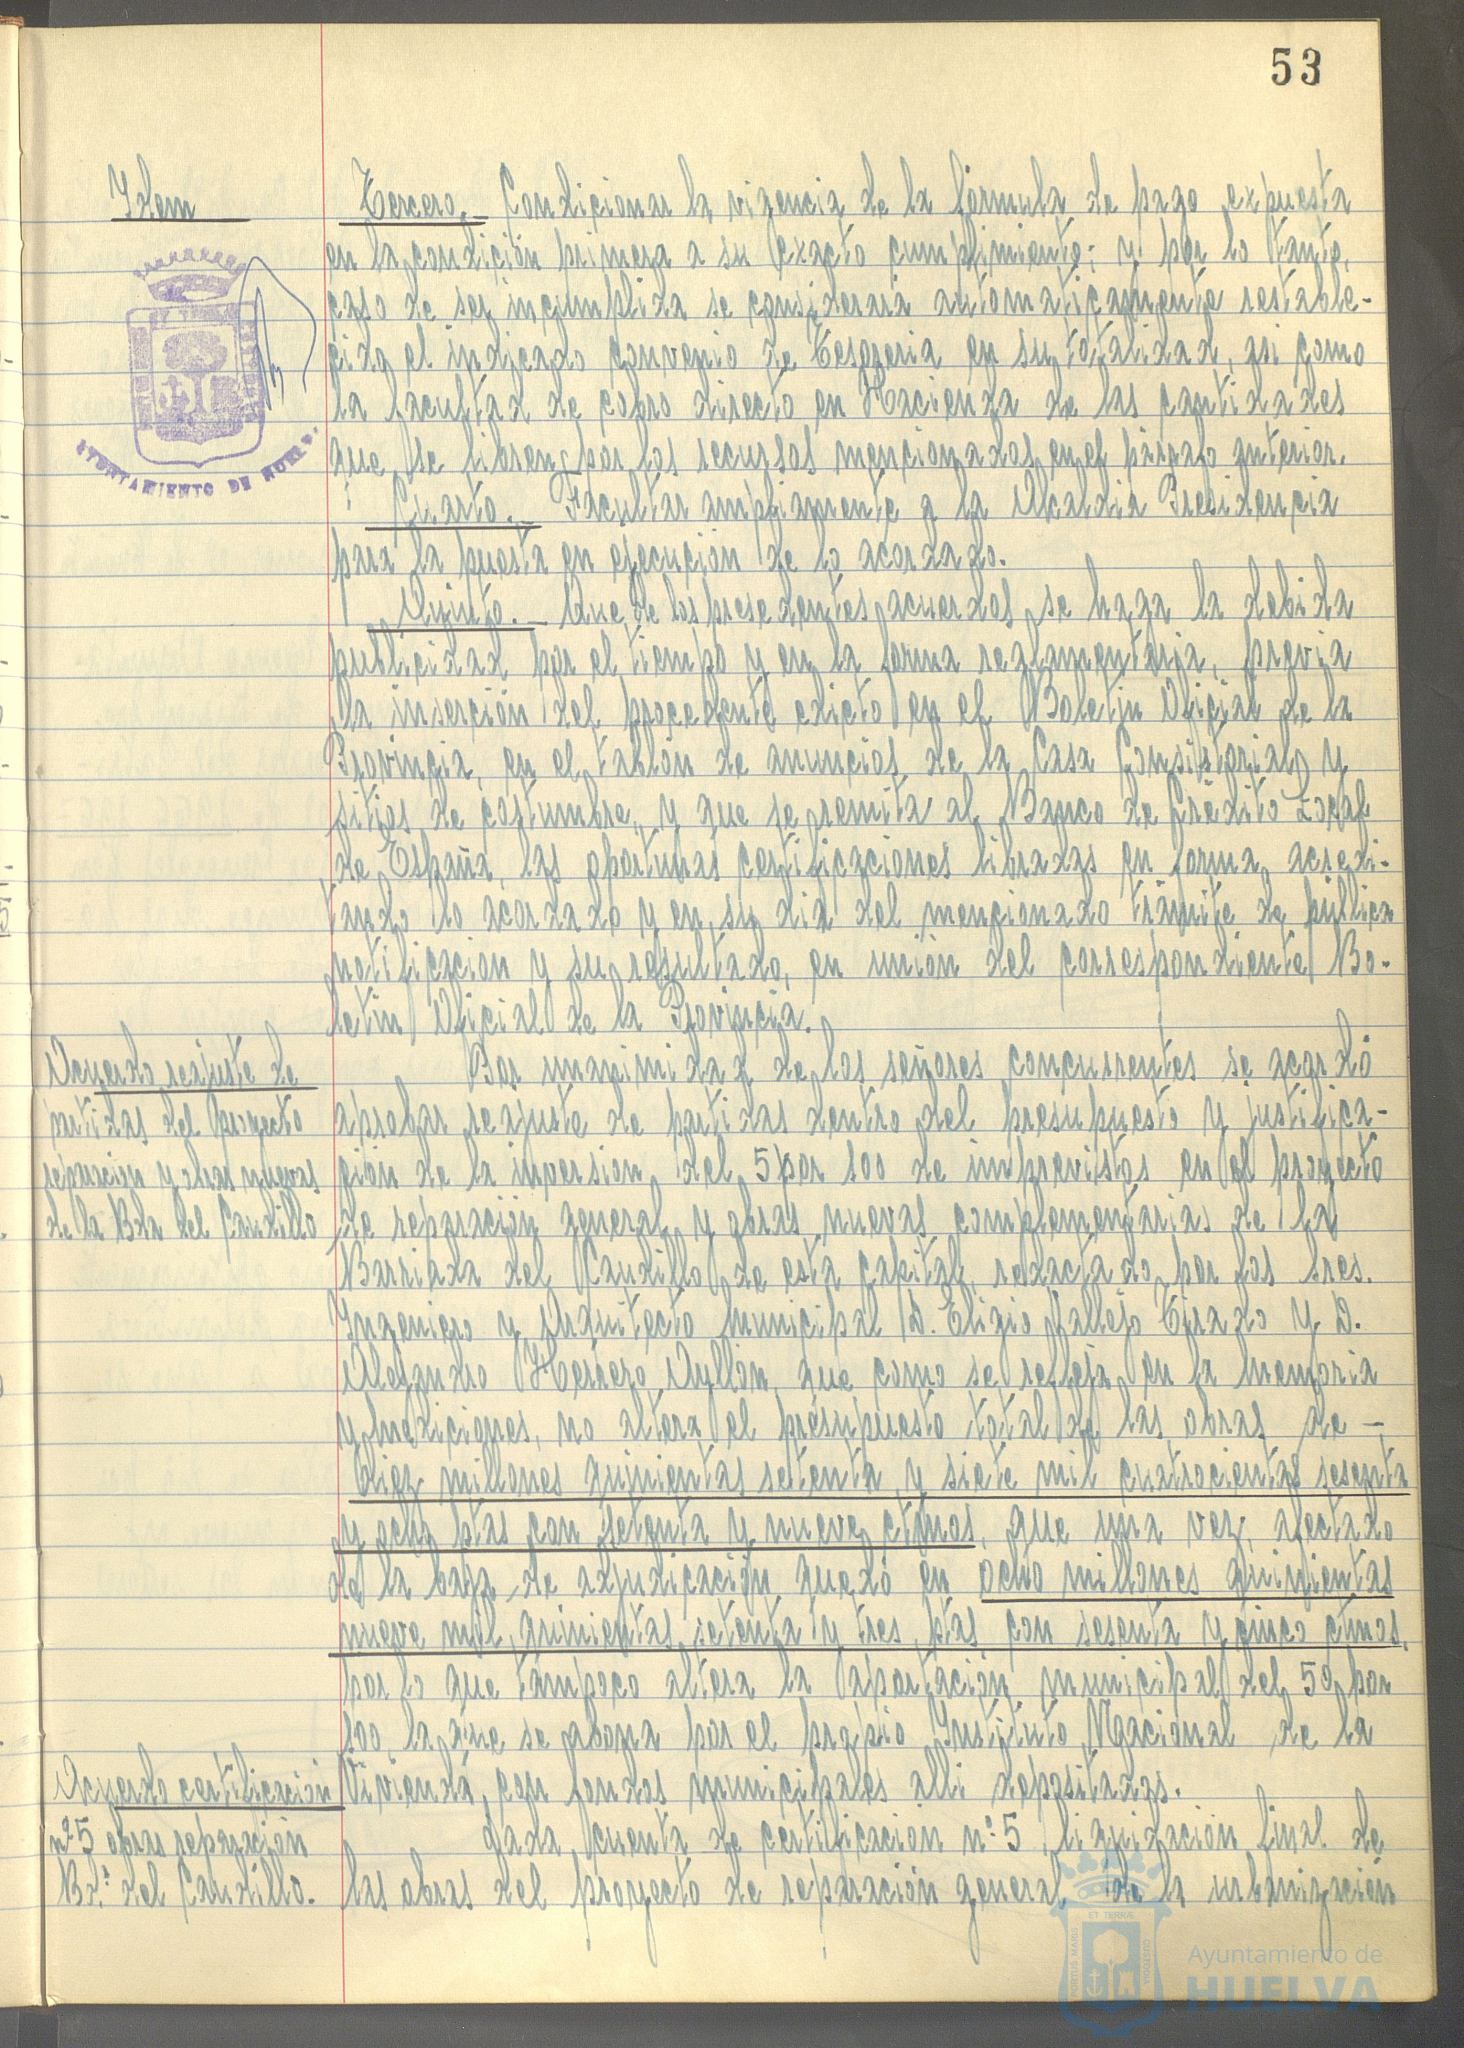 53
Idem
Tercero.- Condicionar la vigencia de la fórmula de pago expuesta
en la condición primera a su exacto cumplimiento; y por lo tanto,
caso de ser incumplida se considerará automaticamente restable-
cida el indicado convenio de Tesoreria en su totalidad, asi como
la facultad de cobro directo en Hacienda de las cantidades
que se libren por los recursos mencionados en el párrafo anterior.
Cuarto.- Facultar ampliamente a la Alcaldia Presidencia
para la puesta en ejecución de lo acordado.
Quinto.- Que de los presedentes acuerdos se haga la debida
publicidad por el tiempo y en la forma reglamentaria, previa
la inserción del procedente edicto en el Boletin Oficial de la
Provincia, en el tablón de anuncios de la Casa Consistorial y
sitios de costumbre, y que se remita al Banco de Crédito Local
de España, las oportunas certificaciones libradas en forma, acredi-
tando lo acordado y en su dia del mencionado trámite de pública
notificación y su resultado, en unión del correspondiente Bo-
letin Oficial de la Provincia.
Acuerdo reajuste de
partidas del proyecto
reparación y obras nuevas
de la Bda del Caudillo
Por unanimidad de los señores concurrentes se acordó
aprobar reajuste de partidas dentro del presupuesto y justifica-
ción de la inversión del 5 por 100 de imprevistos en el proyecto
de reparación general y obras nuevas complementarias de la
Barriada del Caudillo de esta capital, redactado por los sres.
Ingeniero y Arquitecto municipal D. Eligio Vallejo Tirado y D.
Alejandro Herrero Ayllón, que como se refleja en la memoria
y mediciones, no altera el presupuesto total de las obras de -
diez millones quinientas setenta y siete mil cuatrocientas sesenta
y ocho ptas con setenta y nueve ctmos, que una vez afectado
de la baja de adjudicación quedó en ocho millones quinientas
nueve mil quinientas setenta y tres ptas con sesenta y cinco ctmos,
por lo que tampoco altera la aportación municipal del 50 por
100, la que se abona por el propio Instituto Nacional de la
Vivienda, con fondos municipales alli depositados.
Acuerdo certificación
nº 5 obras reparación
Bdª del Caudillo.
Dada cuenta de certificación nº 5 liquidación final de
las obras del proyecto de reparación general de la urbanización
AYUNTAMIENTO DE HUELVA
PORTUS MARIS
ET TERRÆ
CUSTODIA
Ayuntamiento de
HUELVA